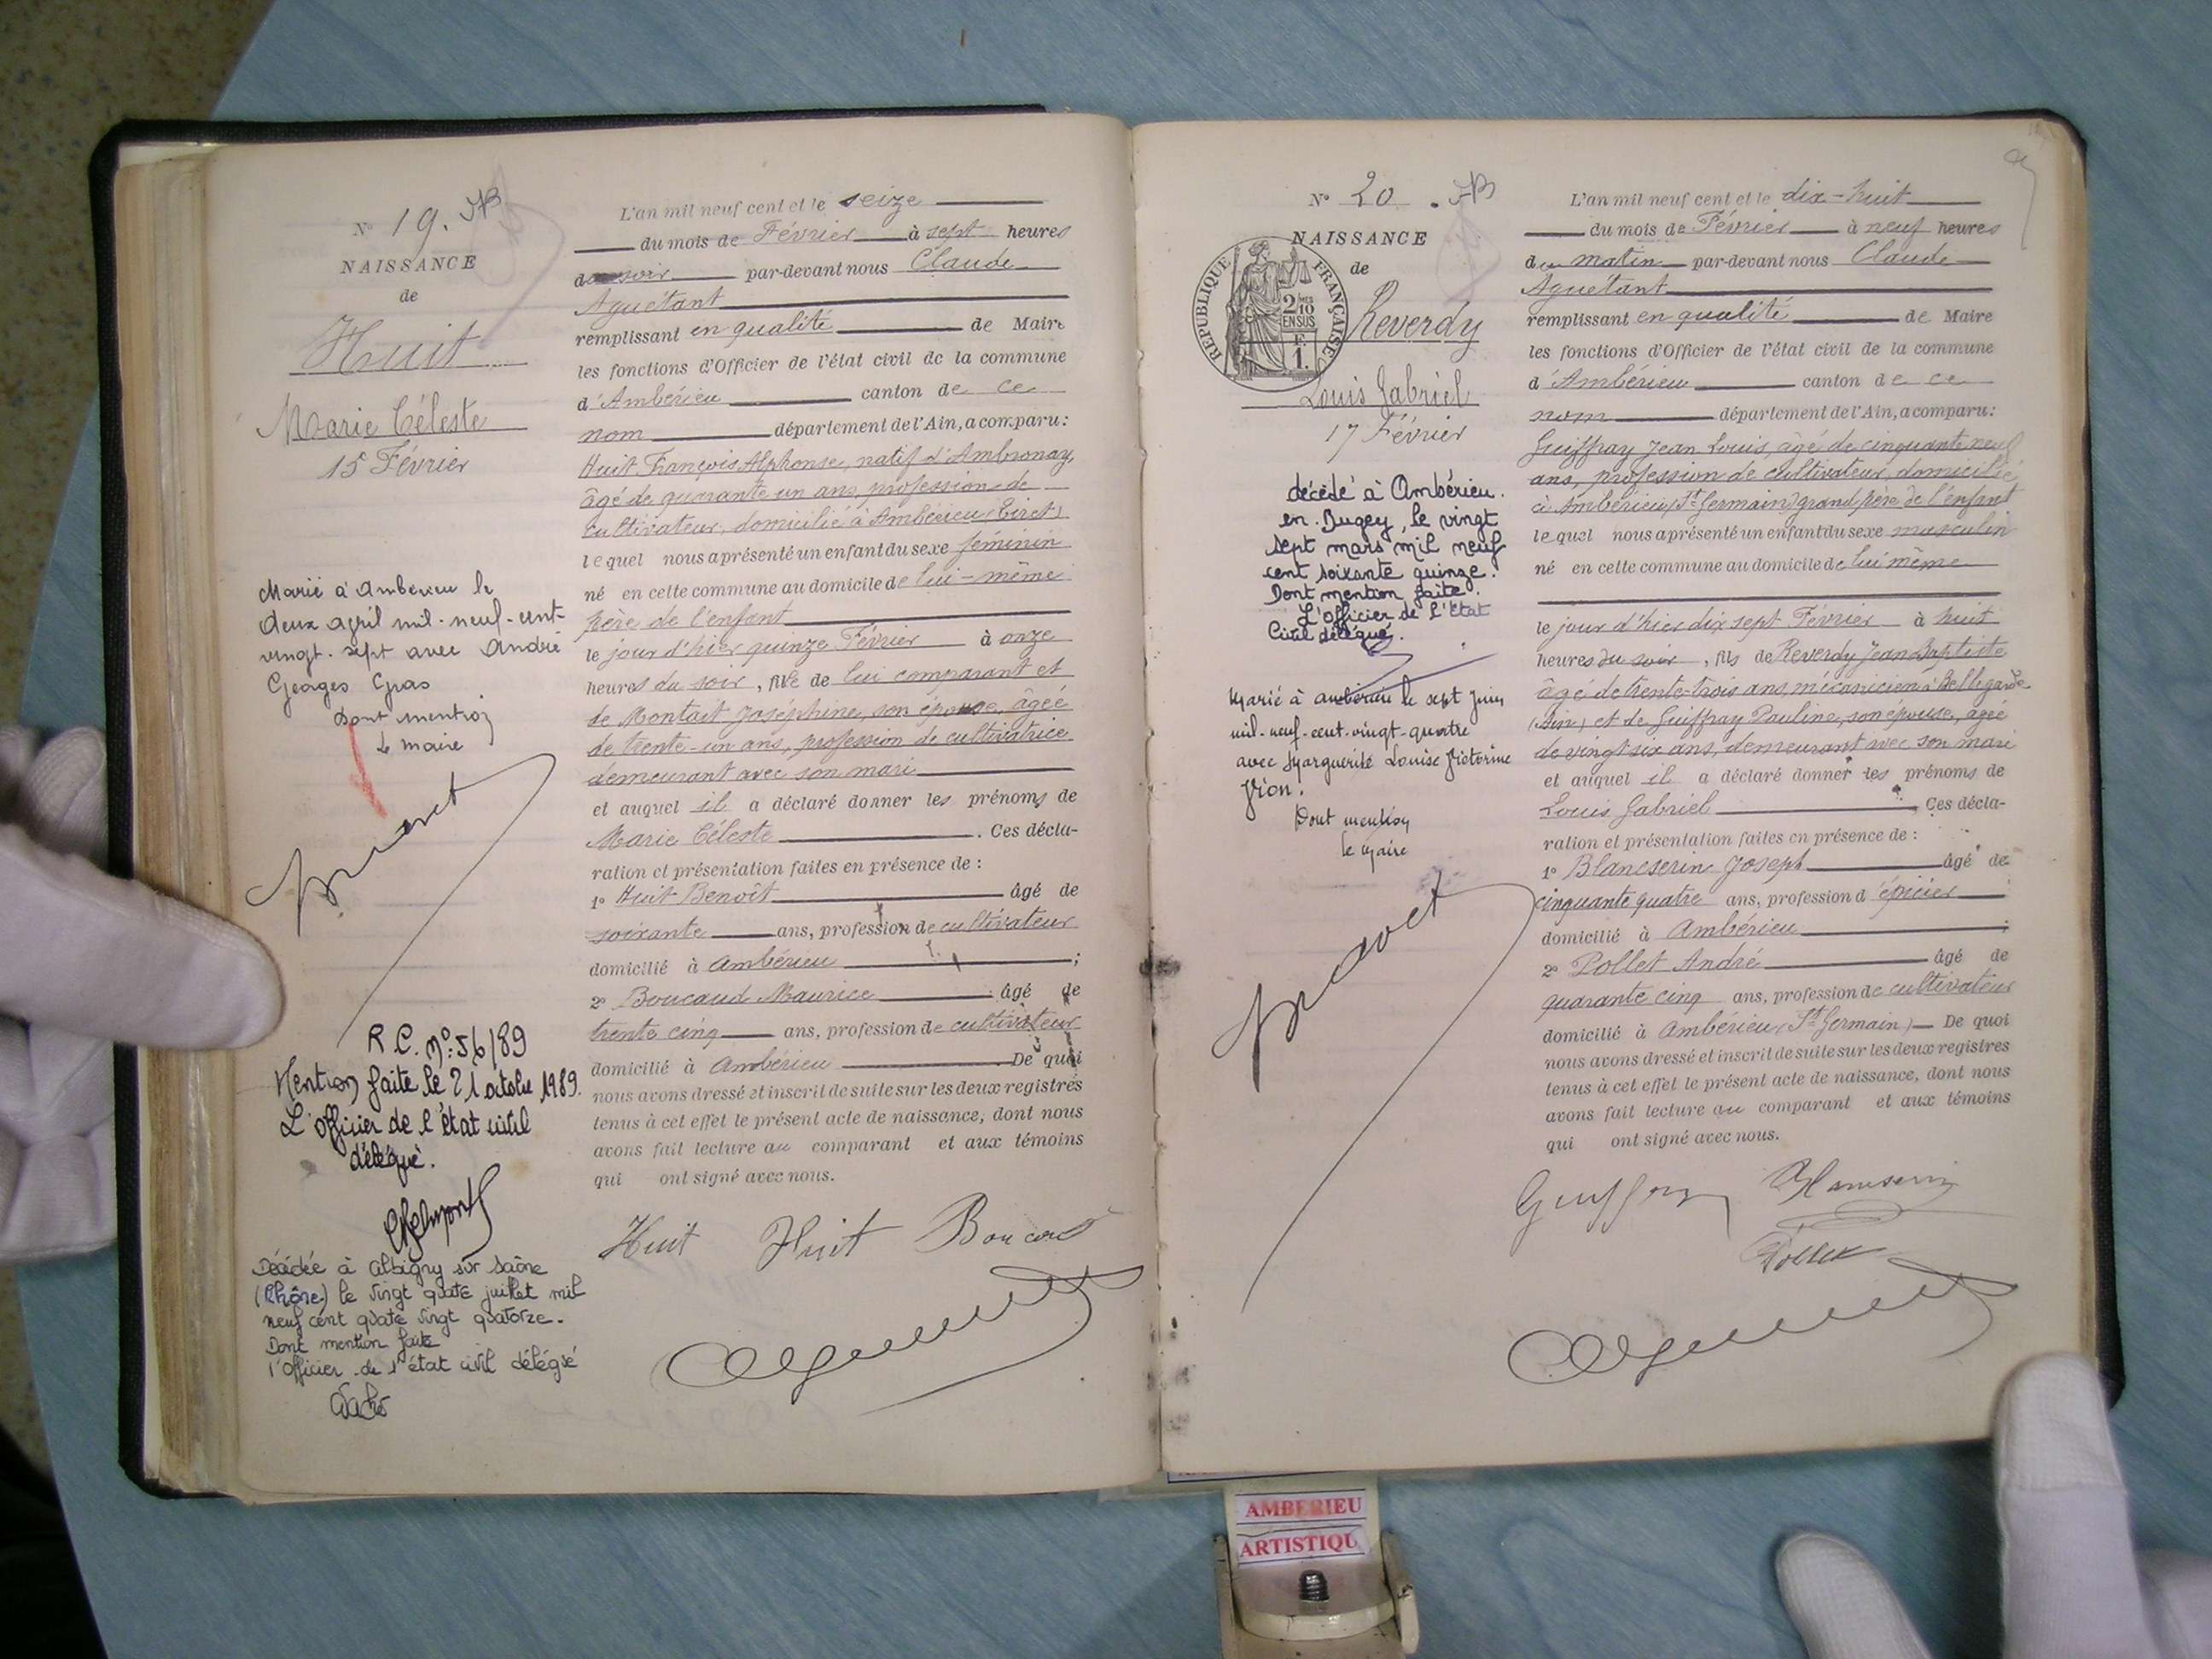 N° 19.
NAISSANCE
de
Huit
Marie Céleste
15 Février
Marié à Ambérieu le
deux avril mil-neuf-cent-
vingt-sept avec André
Georges Gras
Dont mention
Le maire
R.C. n°: 56/89
Mention faite le 21 octobre 1989.
L'officier de l'état civil
délégué.
Décédée à Albigny sur Saône
(Rhône) le vingt quatre juillet mil
neuf cent quatre vingt quatorze.
Dont mention faite
l'officier de l'état civil délégué
L'an mil neuf cent et le seize
du mois de Février à sept heures
du soir par-devant nous Claude
Aguétant
remplissant en qualité de Maire
les fonctions d'Officier de l'état civil de la commune
d'Ambérieu canton de ce
nom département de l'Ain, a comparu:
Huit François Alphonse, natif d'Ambronay,
âgé de quarante un ans, profession de
cultivateur, domicilié à Ambérieu (Tiret)
lequel nous a présenté un enfant du sexe féminin
né en cette commune au domicile de lui-même
père de l'enfant
le jour d'hier quinze Février à onze
heures du soir, fille de lui comparant et
de Montait Joséphine, son épouse, âgée
de trente-un ans, profession de cultivatrice
demeurant avec son mari
et auquel il a déclaré donner les prénoms de
Marie Céleste. Ces décla-
ration et présentation faites en présence de :
1° Huit Benoît âgé de
soixante ans, profession de cultivateur
domicilié à Ambérieu ;
2° Boucaud Maurice âgé de
trente cinq ans, profession de cultivateur
domicilié à Ambérieu De quoi
nous avons dressé et inscrit de suite sur les deux registres
tenus à cet effet le présent acte de naissance, dont nous
avons fait lecture au comparant et aux témoins
qui ont signé avec nous.
Huit Huit Boucaud
N° 20.
NAISSANCE
de
RÉPUBLIQUE FRANÇAISE
2/10 EN SUS
F. 1.
Reverdy
Louis Gabriel
17 Février
décédé à Ambérieu.
en Bugey, le vingt
sept mars mil neuf
cent soixante quinze.
Dont mention faite.
L'officier de l'Etat
Civil délégué.
Marié à Ambérieu le sept Juin
mil-neuf-cent-vingt-quatre
avec Marguerite Louise Victorine
Vion.
Dont mention
le Maire
L'an mil neuf cent et le dix-huit
du mois de Février à neuf heures
du matin par-devant nous Claude
Aguétant
remplissant en qualité de Maire
les fonctions d'Officier de l'état civil de la commune
d'Ambérieu canton de ce
nom département de l'Ain, a comparu:
Guiffray Jean Louis, âgé de cinquante neuf
ans, profession de cultivateur, domicilié
à Ambérieu (St Germain) grand père de l'enfant
lequel nous a présenté un enfant du sexe masculin
né en cette commune au domicile de lui même
le jour d'hier dix sept Février à huit
heures du soir, fils de Reverdy Jean Baptiste
âgé de trente-trois ans, mécanicien à Bellegarde
(Ain) et de Guiffray Pauline, son épouse, âgée
de vingt six ans, demeurant avec son mari
et auquel il a déclaré donner les prénoms de
Louis Gabriel Ces décla-
ration et présentation faites en présence de :
1° Blancserin Joseph âgé de
cinquante quatre ans, profession d'épicier
domicilié à Ambérieu ;
2° Pollet André âgé de
quarante cinq ans, profession de cultivateur
domicilié à Ambérieu (St Germain) De quoi
nous avons dressé et inscrit de suite sur les deux registres
tenus à cet effet le présent acte de naissance, dont nous
avons fait lecture au comparant et aux témoins
qui ont signé avec nous.
Guiffray Blancserin
Pollet
AMBERIEU
ARTISTIQU